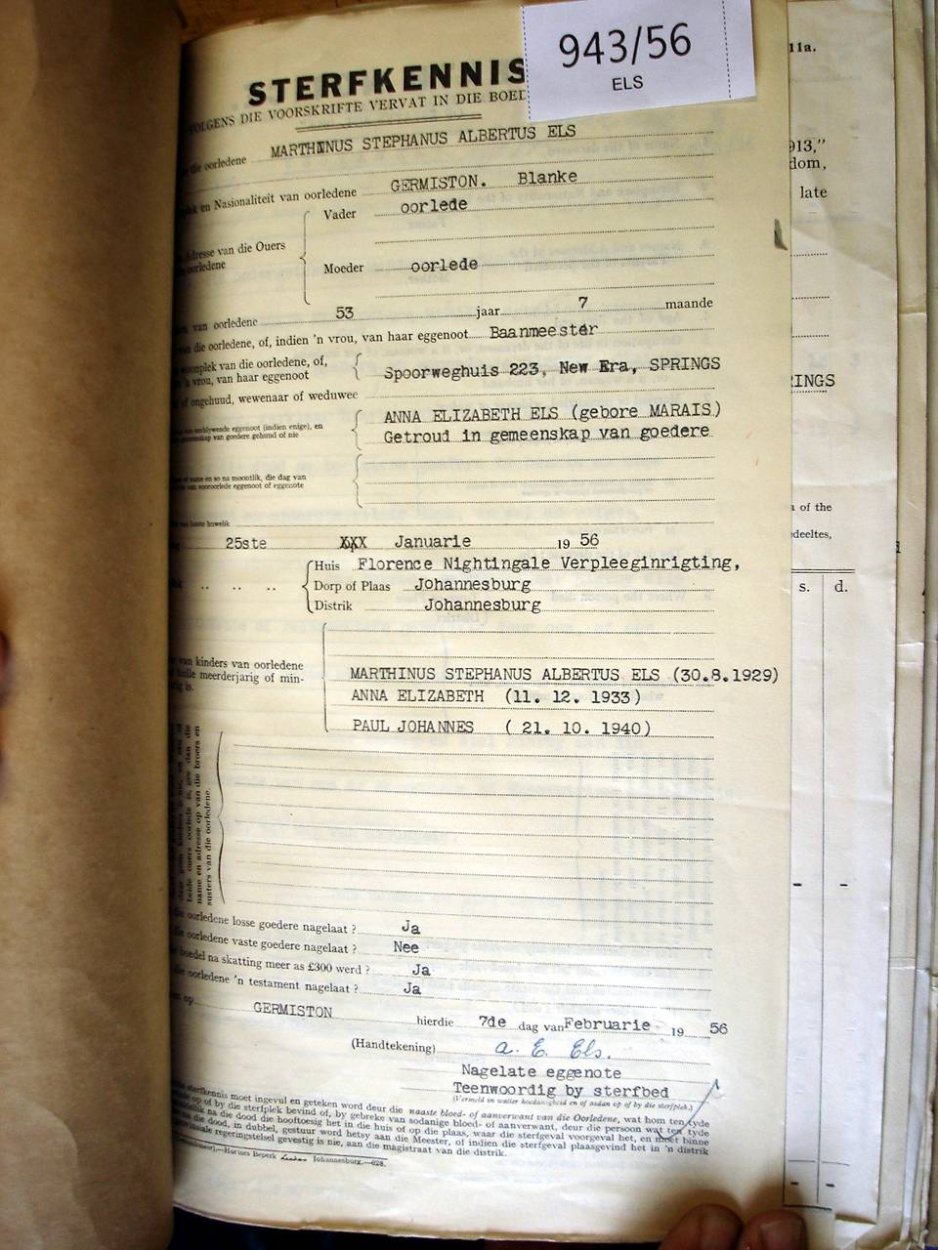 943/56
ELS
STERFKENNIS
VOLGENS DIE VOORSKRIFTE VERVAT IN DIE BOED
die oorledene MARTHINUS STEPHANUS ALBERTUS ELS
en Nasionaliteit van oorledene GERMISTON. Blanke
Vader oorlede
Adresse van die Ouers
oorledene
Moeder oorlede
van oorledene 53 jaar 7 maande
van die oorledene, of, indien 'n vrou, van haar eggenoot Baanmeester
woonplek van die oorledene, of,
'n vrou, van haar eggenoot Spoorweghuis 223, New Era, SPRINGS
of ongehuud, wewenaar of weduwee
eggenoot (indien enige), en
van goedere gehuud of nie
ANNA ELIZABETH ELS (gebore MARAIS)
Getroud in gemeenskap van goedere
en so na moontlik, die dag van
van vooroorlede eggenoot of eggenote
laaste huwelik
25ste XXX Januarie 19 56
Huis Florence Nightingale Verpleeginrigting,
Dorp of Plaas Johannesburg
Distrik Johannesburg
van kinders van oorledene
hulle meerderjarig of min-
is.
MARTHINUS STEPHANUS ALBERTUS ELS (30.8.1929)
ANNA ELIZABETH (11. 12. 1933)
PAUL JOHANNES ( 21. 10. 1940)
beide ouers oorlede is, gee dan die
name en adresse op van die broers en
susters van die oorledene.
die oorledene losse goedere nagelaat ? Ja
die oorledene vaste goedere nagelaat ? Nee
boedel na skatting meer as £300 werd ? Ja
die oorledene 'n testament nagelaat ? Ja
op GERMISTON hierdie 7de dag van Februarie 19 56
(Handtekening) A. E. Els.
Nagelate eggenote
Teenwoordig by sterfbed
(Vermeld in watter hoedanigheid en of aldan op of by die sterfplek.)
sterfkennis moet ingevul en geteken word deur die naaste bloed- of aanverwant van die Oorledene, wat hom ten tyde
op of by die sterfplek bevind of, by gebreke van sodanige bloed- of aanverwant, deur die persoon wat ten tyde
na die dood die hooftoesig het in die huis of op die plaas, waar die sterfgeval voorgeval het, en moet binne
die dood, in dubbel, gestuur word hetsy aan die Meester, of indien die sterfgeval plaasgevind het in 'n distrik
regeringstelsel gevestig is nie, aan die magistraat van die distrik.
Beperk Johannesburg.—628.
11a.
913,"
dom,
late
INGS
of the
deeltes,
s. d.
- -
- -